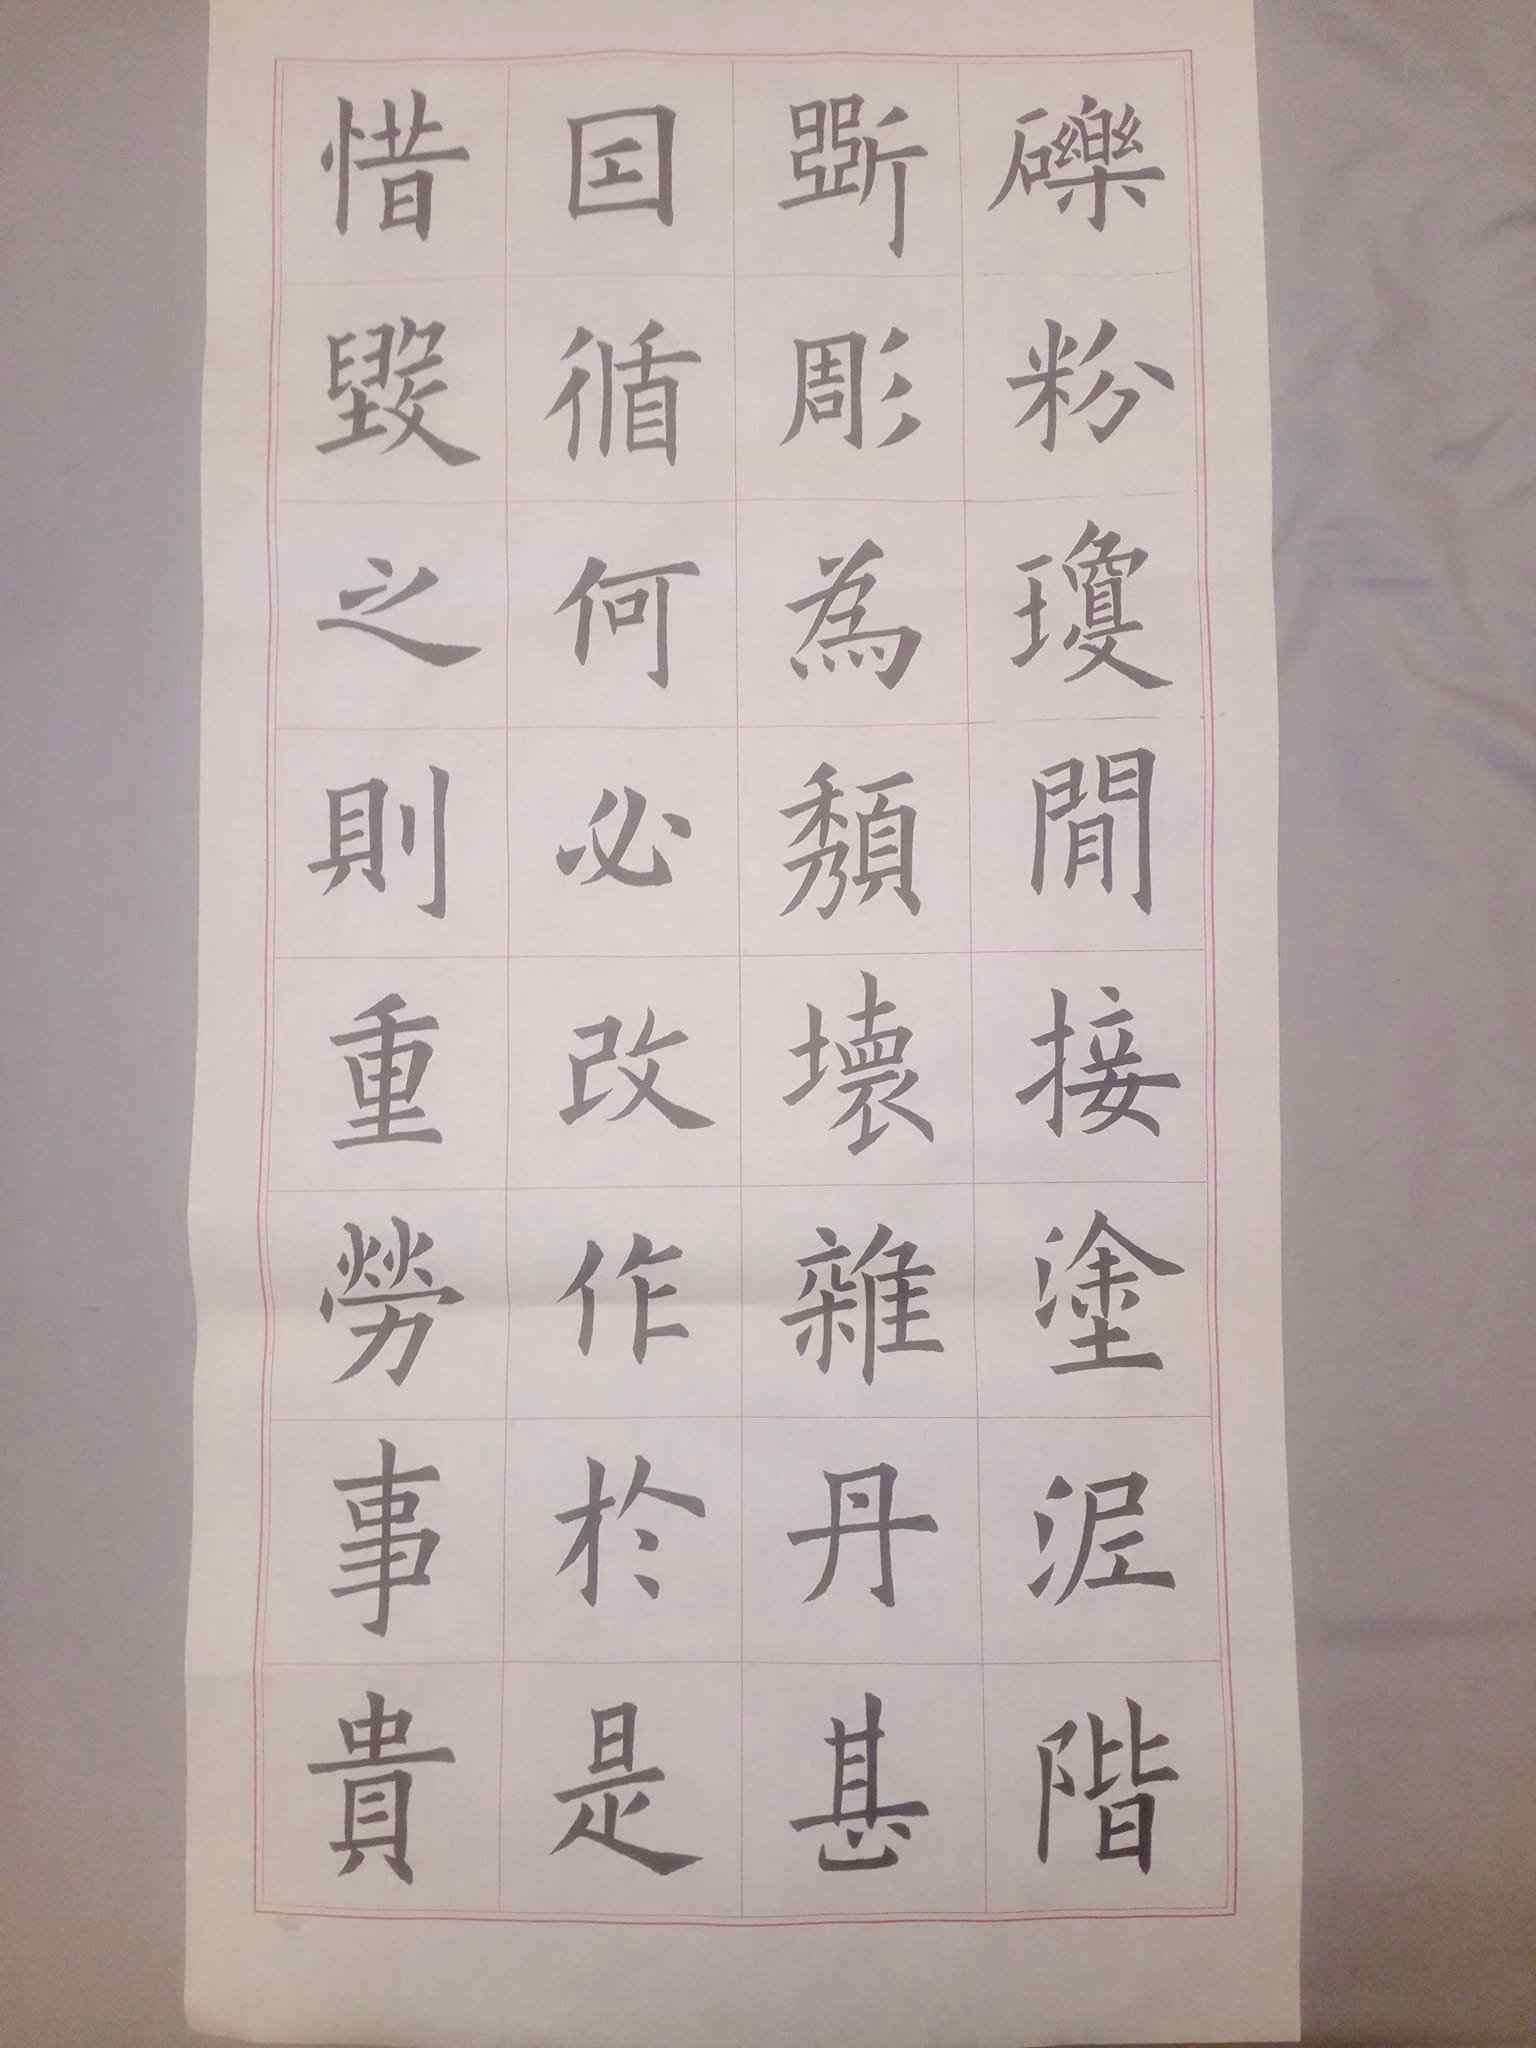 礫粉瓊間接塗泥階
斵彫為頹壞雜丹甚
因循何必改作於是
惜毀之則重勞事貴